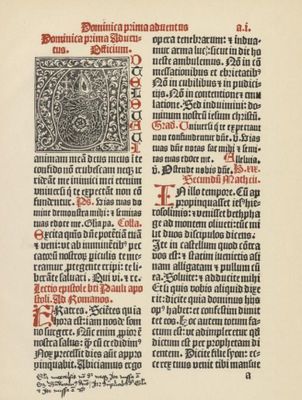 Dominica prima aduentus
a.i.
Dominica prima Aduen-
tus. Officium.
animam meā deus meus in te
confido nō erubescam neqz ir
rideāt me inimici mei etenim
vniuersi q̄ te expectāt non cō
fundentur. Ps. Uias tuas do
mine demostra mihi: ⁊ semitas
tuas edoce me. Glīa pa. Collā.
Excita q̄ss dn̄e potētiā tuā
⁊ veni: vt ab imminētib⁹ pec
catoꝝ nostroꝝ piculis te me-
reamur ꝓtegente eripi: te li-
berāte saluari. Qui vi. ⁊ re.
Lectio epistole btī Pauli apo
stoli. Ad Romanos.
Fratres. Sciētes quia
hora est: iam nos de som
no surgere. Nūc enim ꝓpior ē
nostra salus: q̄ cū credidim⁹
Nox precessit dies aūt appro
pinquabit. Abiiciamus ergo
opera tenebrarum: ⁊ indua-
mur arma lucis: sicut in die ho
neste ambulemus. Nō in cō
messationibus et ebrietatib⁹
Nō in cubilibus et in pudici
tiis. Nō in contentione ⁊ emu
latione. Sed induimini: do-
minum nostrū iesum christū
Grad. Uniuersi q̄ te expectant
non confundentur dn̄e. v. Uias
tuas dn̄e notas fac mihi ⁊ semi
tas tuas edoce me. Alleluia.
v. Ostende nobis dn̄e.
Secundū Matheū.
In illo tempore. Cū ap
propinquasset iesus hie-
rosolimis: ⁊ venisset bethphage
ad montem oliueti: tunc mi
sit duos discipulos dicens:
Ite in castellum quod cōtra
vos est: ⁊ statim inuenietis asi
nam alligatam ⁊ pullum cū
ea. Soluite: ⁊ adducite mihi
Et si quis vobis aliquid dixe
rit: dicite quia dominus his op⁹
habet: et confestim dimittet
eos. Hoc autem totum fac
tum est: vt adimpleretur qd̄
dictum est per prophetam
dicentem. Dicite filie syon: ec-
ce rex tuus venit tibi mansue
a